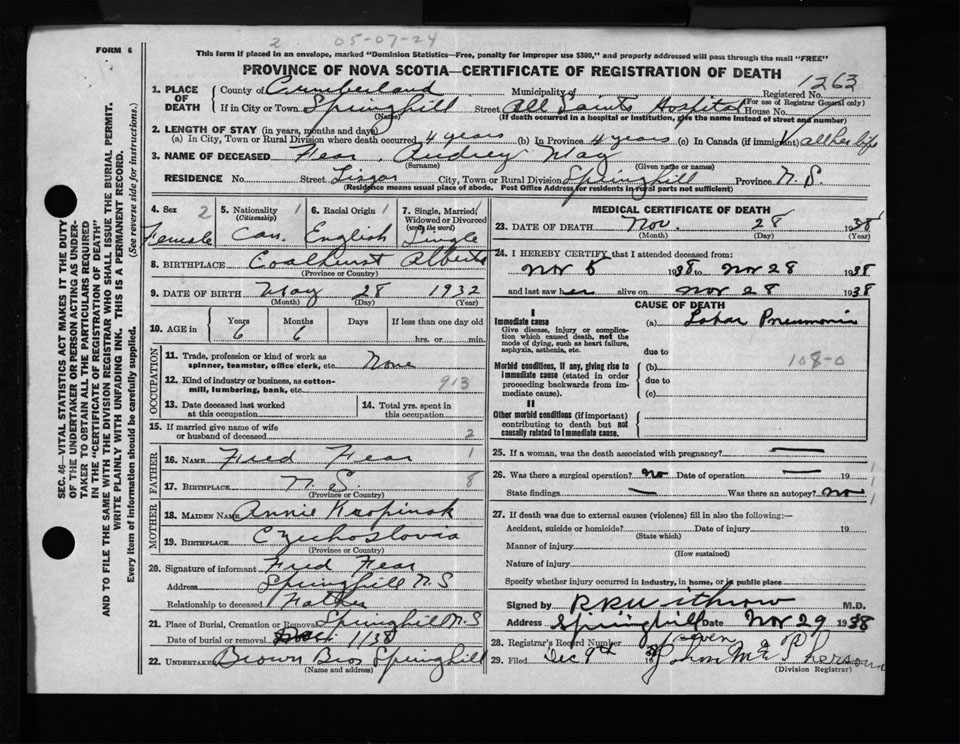 2 05-07-24
FORM 6
This form if placed in an envelope, marked "Dominion Statistics—Free, penalty for improper use $300," and properly addressed will pass through the mail "FREE"
PROVINCE OF NOVA SCOTIA—CERTIFICATE OF REGISTRATION OF DEATH
1263
1. PLACE OF DEATH County of Cumberland Municipality of Registered No.
(For use of Registrar General only)
If in City or Town Springhill Street All Saints Hospital House No.
(Name) (If death occurred in a hospital or institution, give the name instead of street and number)
2. LENGTH OF STAY (in years, months and days)
(a) In City, Town or Rural Division where death occurred 4 years (b) In Province 4 years (c) In Canada (if immigrant) all her life
3. NAME OF DECEASED Fear, Audrey May
(Surname) (Given name or names)
RESIDENCE No. Street Lisgar City, Town or Rural Division Springhill Province N.S.
(Residence means usual place of abode. Post Office Address for residents in rural parts not sufficient)
4. Sex 2 Female
5. Nationality 1 (Citizenship) Can.
6. Racial Origin 1 English
7. Single, Married, Widowed or Divorced (write the word) 1 Single
8. BIRTHPLACE Coalhurst Alberta
(Province or Country)
9. DATE OF BIRTH May 28 1932
(Month) (Day) (Year)
10. AGE in Years Months Days If less than one day old
6 6 hrs. or min.
OCCUPATION
11. Trade, profession or kind of work as spinner, teamster, office clerk, etc. None
12. Kind of industry or business, as cotton-mill, lumbering, bank, etc. 913
13. Date deceased last worked at this occupation
14. Total yrs. spent in this occupation
15. If married give name of wife or husband of deceased 2
FATHER
16. NAME Fred Fear 1
17. BIRTHPLACE N.S. 8
(Province or Country)
MOTHER
18. MAIDEN NAME Annie
19. BIRTHPLACE Czechoslovia
(Province or Country)
20. Signature of informant Fred Fear
Address Springhill N.S
Relationship to deceased Father
21. Place of Burial, Cremation or Removal Springhill N.S
Date of burial or removal 1/38
22. UNDERTAKER Brown Bros Springhill
(Name and address)
MEDICAL CERTIFICATE OF DEATH
23. DATE OF DEATH Nov. 28 1938
(Month) (Day) (Year)
24. I HEREBY CERTIFY that I attended deceased from:
Nov 5 1938 to Nov 28 1938
and last saw her alive on Nov 28 1938
CAUSE OF DEATH
I
Immediate cause (a) Lobar Pneumonia
Give disease, injury or complication which caused death, not the mode of dying, such as heart failure, asphyxia, asthenia, etc.
due to
108-0
Morbid conditions, if any, giving rise to immediate cause (stated in order proceeding backwards from immediate cause).
(b)
due to
(c)
II
Other morbid conditions (if important) contributing to death but not causally related to immediate cause.
25. If a woman, was the death associated with pregnancy? —
26. Was there a surgical operation? no Date of operation — 19 1
State findings — Was there an autopsy? no 1
27. If death was due to external causes (violence) fill in also the following:—
Accident, suicide or homicide? Date of injury 19
(State which)
Manner of injury
(How sustained)
Nature of injury
Specify whether injury occurred in industry, in home, or in public place
Signed by M.D.
Address Springhill Date Nov 29 1938
28. Registrar's Record Number
29. Filed Dec 9th 19
(Division Registrar)
SEC. 46—VITAL STATISTICS ACT MAKES IT THE DUTY
OF THE UNDERTAKER OR PERSON ACTING AS UNDERTAKER TO OBTAIN ALL THE PARTICULARS REQUIRED
IN THE "CERTIFICATE OF REGISTRATION OF DEATH"
AND TO FILE THE SAME WITH THE DIVISION REGISTRAR WHO SHALL ISSUE THE BURIAL PERMIT.
WRITE PLAINLY WITH UNFADING INK. THIS IS A PERMANENT RECORD.
Every item of information should be carefully supplied. (See reverse side for instructions.)